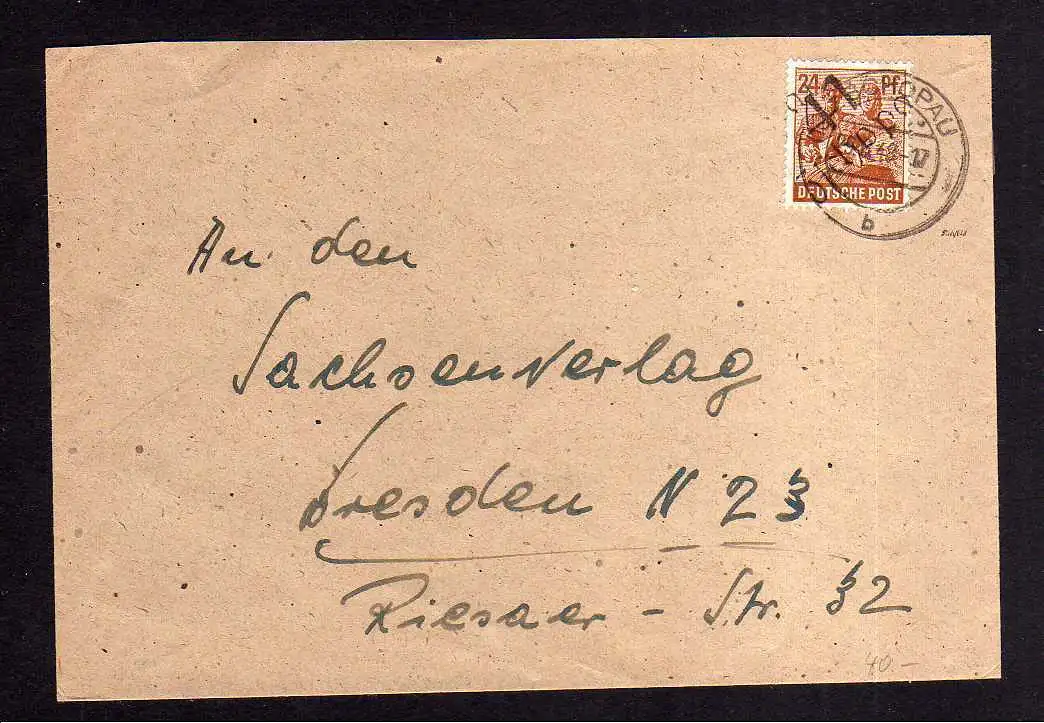 24 Pf
41
DEUTSCHE POST
17
b
An den
Sachsenverlag
Dresden N 23
Riesaer - Str. 32
40.-